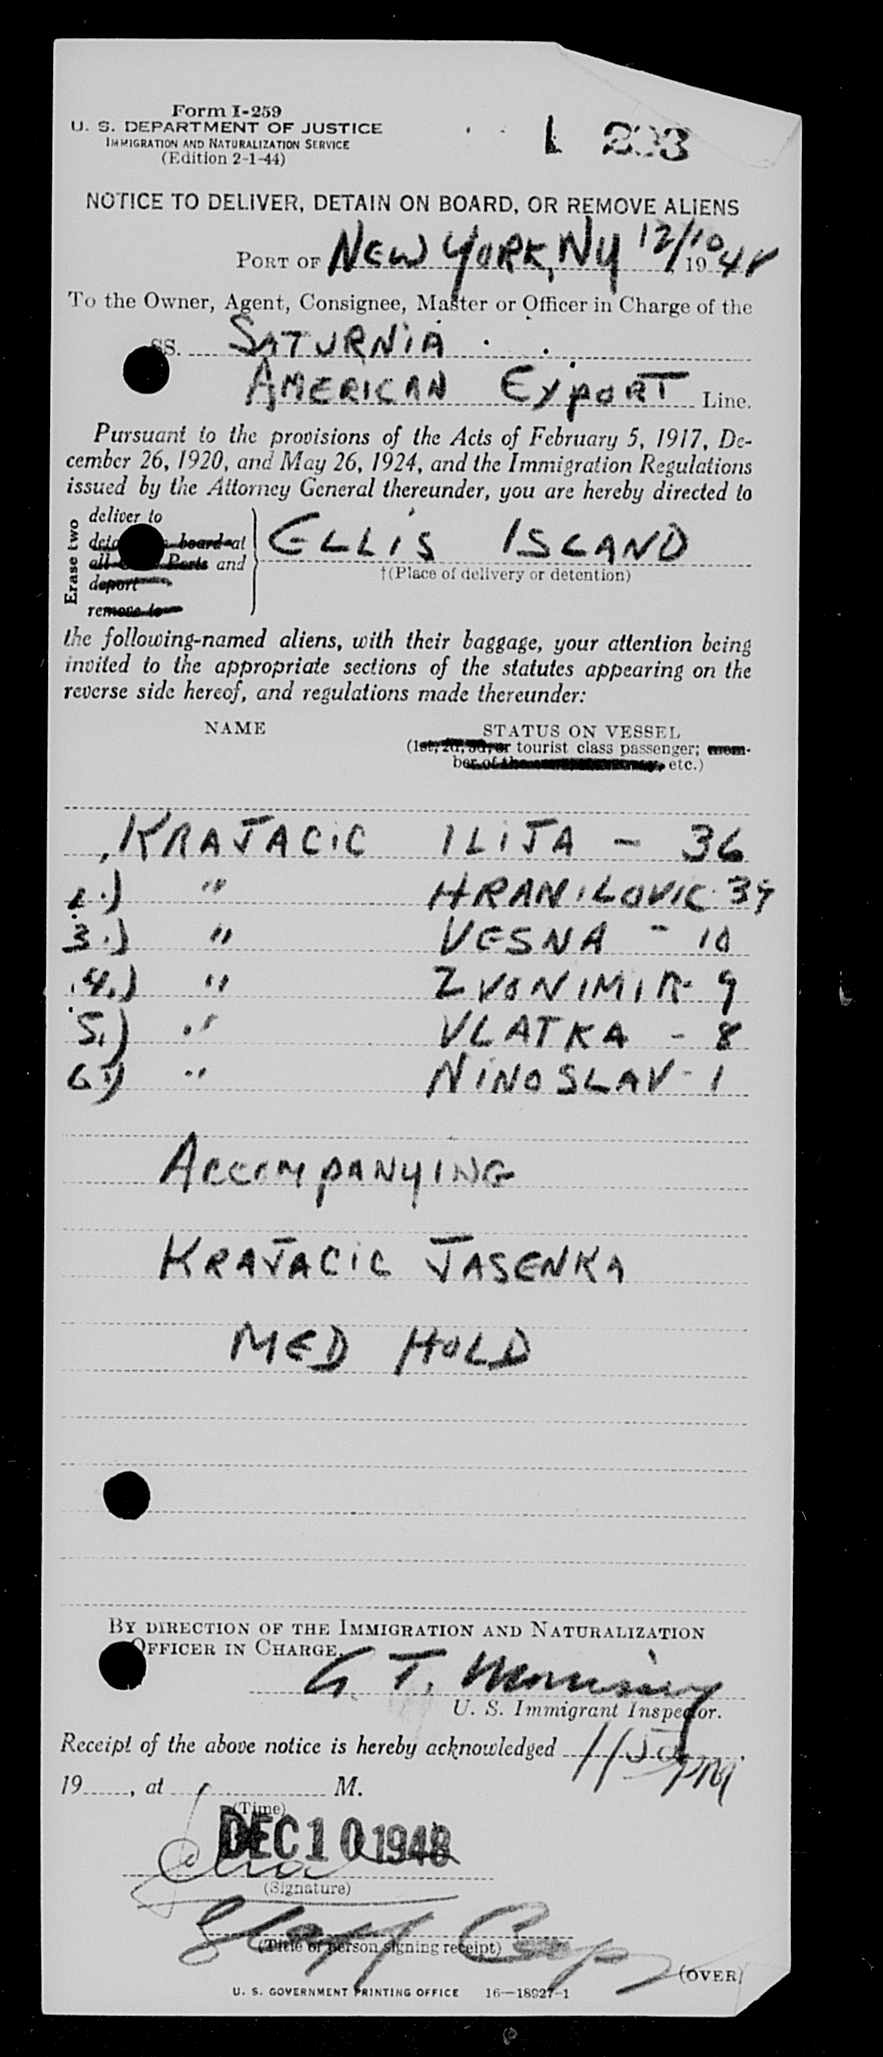 Form I-259
U. S. DEPARTMENT OF JUSTICE
IMMIGRATION AND NATURALIZATION SERVICE
(Edition 2-1-44)
L 233
NOTICE TO DELIVER, DETAIN ON BOARD, OR REMOVE ALIENS
PORT OF NEW YORK, NY 12/10 1948
To the Owner, Agent, Consignee, Master or Officer in Charge of the
SS. SATURNIA
AMERICAN EXPORT Line.
Pursuant to the provisions of the Acts of February 5, 1917, De-
cember 26, 1920, and May 26, 1924, and the Immigration Regulations
issued by the Attorney General thereunder, you are hereby directed to
Erase two
deliver to
board at
all Ports and
deport
remove to
ELLIS ISLAND
†(Place of delivery or detention)
the following-named aliens, with their baggage, your attention being
invited to the appropriate sections of the statutes appearing on the
reverse side hereof, and regulations made thereunder:
NAME STATUS ON VESSEL
(1st, 2d, 3d, or tourist class passenger; mem-
ber of the etc.)
KRAJACIC ILIJA - 36
2.) " HRANILOVIC 39
3.) " VESNA - 10
4.) " ZVONIMIR - 9
5.) " VLATKA - 8
6.) " NINOSLAV - 1
ACCOMPANYING
KRAJACIC JASENKA
MED HOLD
BY DIRECTION OF THE IMMIGRATION AND NATURALIZATION
OFFICER IN CHARGE.
G. T.
U. S. Immigrant Inspector.
Receipt of the above notice is hereby acknowledged 1150 PM
19 , at M.
(Time)
DEC 10 1948
(Signature)
(Title of person signing receipt)
(OVER)
U. S. GOVERNMENT PRINTING OFFICE 16—18927-1